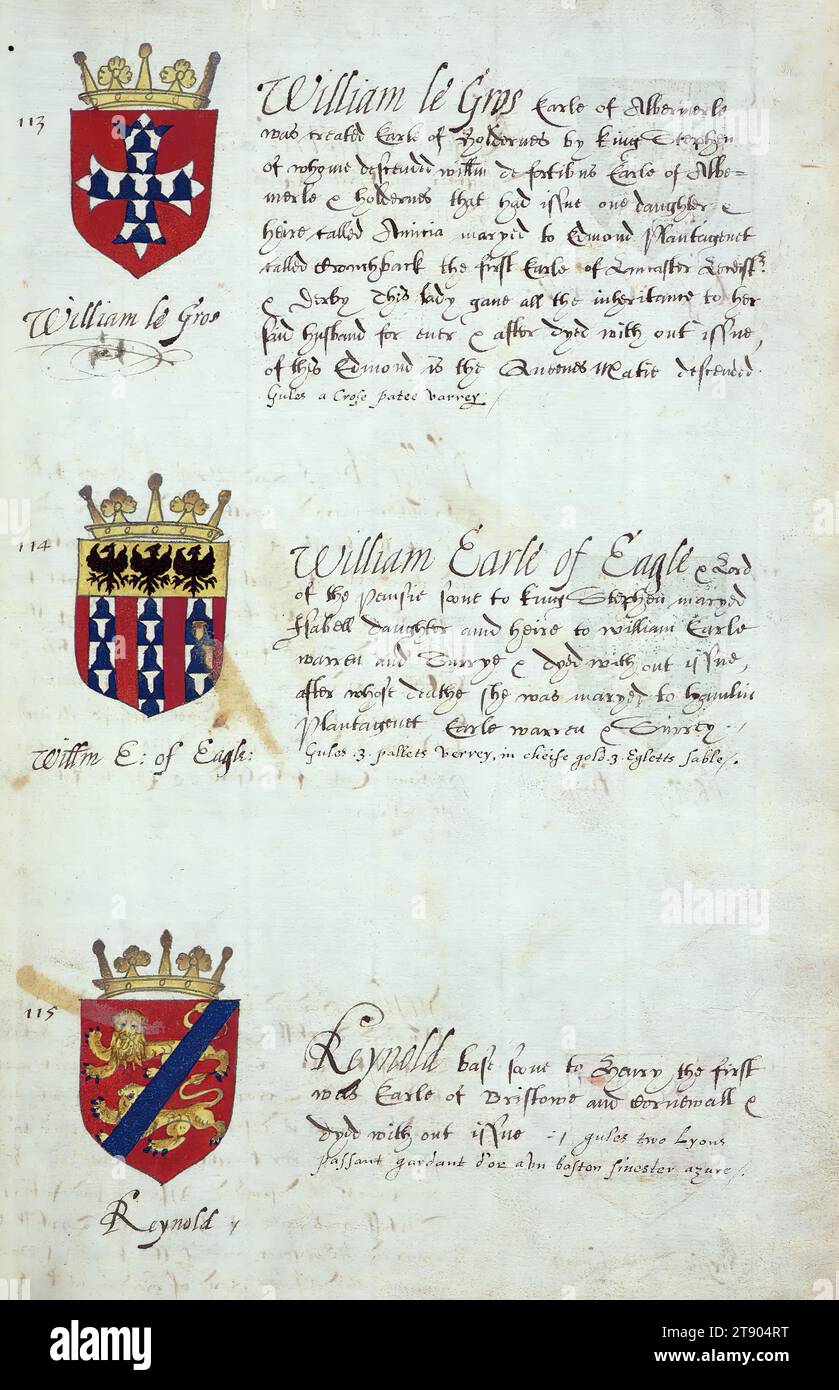 113
William le Gros Earle of Albemerle
was created Earle of Holdernes by King Stephen
of whome descended Willm de fortibus Earle of Albe=
merle & holdernes that had issue one daughter &
heire called Avicia maryed to Edmond Plantagenet
called Crouchback the first Earle of Lancaster
& Derby This lady gave all the inheritance to her
said husband for ever & after dyed with out issue,
of this Edmond is the Queenes Matie descended.
Gules a Crose patee varrey
William le Gros
114
William Earle of Eagle & Lord
of the Pansie sone to King Stephen maryed
Isabell daughter and heire to William Earle
warren and Surrye & dyed with out issue,
after whose deathe she was maryed to Hamlin
Plantagenet Earle warren & Surrey
Gules .3. pallets verrey, in cheife gold .3. Egletts sable
Willm E: of Eagle:
115
Reynold base sone to Henry the first
was Earle of Bristowe and Cornewall &
dyed with out issue gules two Lyons
passant gardant d'or a baston sinester azure
Reynold
alamy
alamy
Image ID: 2T904RT
www.alamy.com